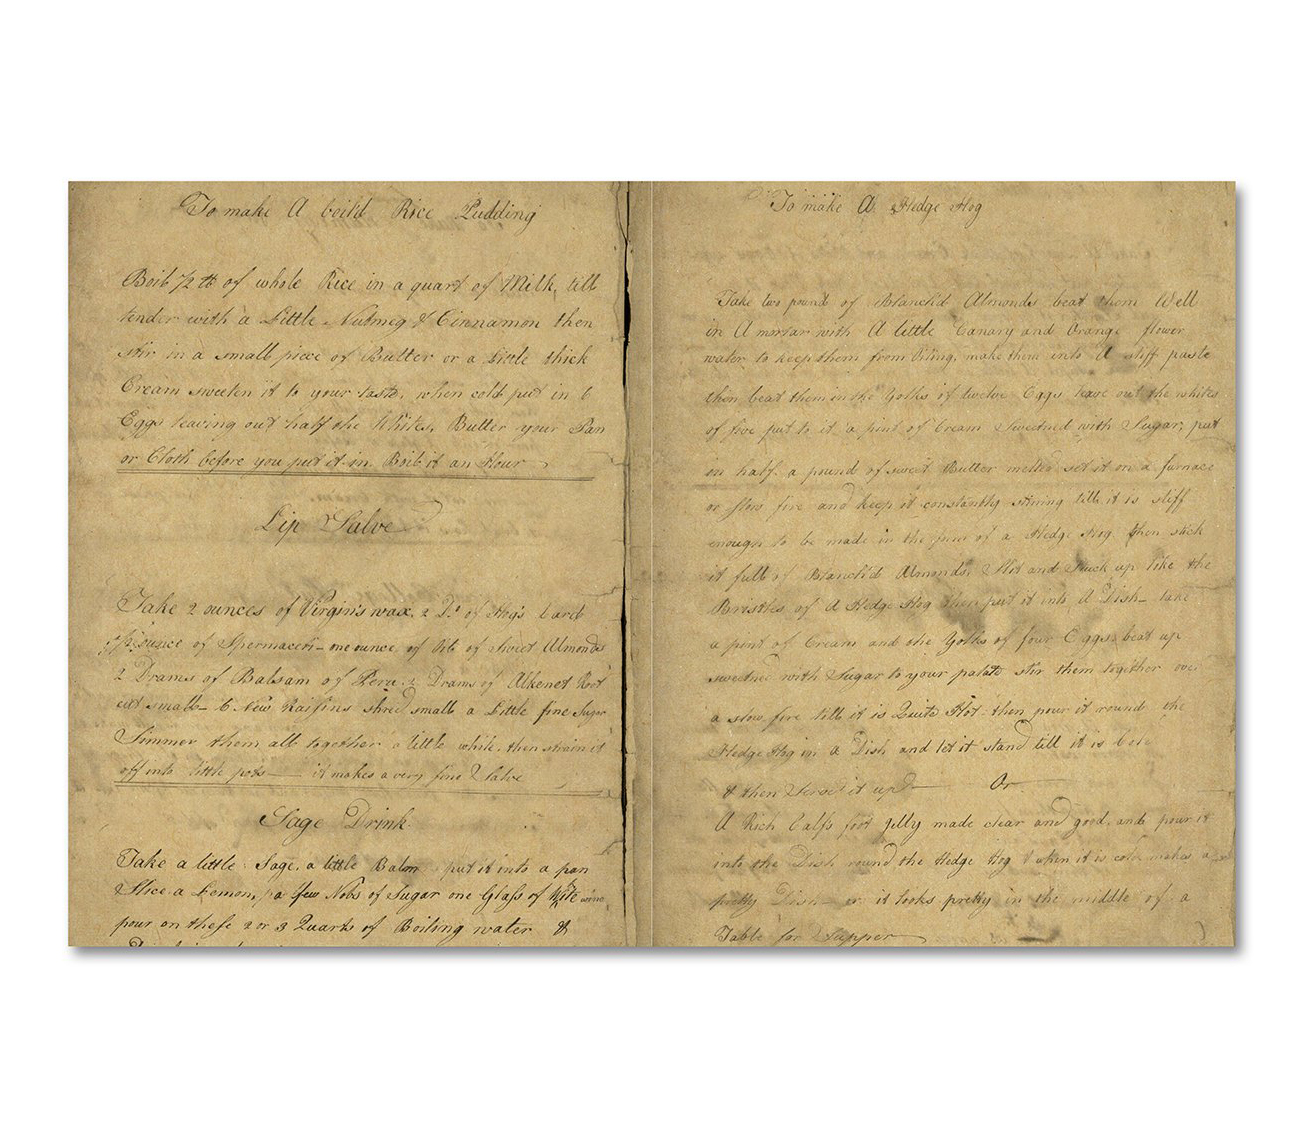 To make A boild Rice Pudding
Boil 1/2 lb of whole Rice in a quart of Milk, till
tender with a Little Nutmeg & Cinnamon then
stir in a small piece of Butter or a little thick
Cream sweeten it to your taste, when cold put in 6
Eggs leaving out half the Whites, Butter your Pan
or Cloth before you put it in. Boil it an Hour
Lip Salve
Take 2 ounces of Virgin's wax, 2 Do of Hog's Lard
ounce of Spermaceti - one ounce of Oil of Sweet Almonds
2 Drams of Balsam of Peru 2 Drams of Alkenet Root
cut small - 6 New Raisins shred small a Little fine Sugar
Simmer them all together a little while, then strain it
off into little pots - it makes a very fine Salve
Sage Drink
Take a little Sage, a little Balm put it into a pan
Slice a Lemon, a few Nobs of Sugar one Glass of Wite wine
pour on these 2 or 3 Quarts of Boiling water &
To make A Hedge Hog
Take two pound of Blanch'd Almonds beat them Well
in A mortar with A little Canary and Orange flower
water to keep them from Oiling, make them into A stiff paste
then beat them in the Yolks of twelve Eggs leave out the whites
of five put to it a pint of Cream Sweetned with Sugar, put
in half a pound of sweet Butter melted set it on a furnace
or slow fire and keep it constantly stirring till it is stiff
enough to be made in the form of a Hedge Hog. then stick
it full of Blanch'd Almonds, Slit and stuck up like the
Bristles of A Hedge Hog then put it into A Dish - take
a pint of Cream and the Yolks of four Eggs beat up
sweetned with Sugar to your palate stir them together over
a slow fire till it is Quite Hot then pour it round the
Hedge Hog in a Dish and let it stand till it is
& then Serve it up Or
A Rich Calfs foot Jelly made clear and good, and pour it
into the Dish round the Hedge Hog & when it is cold makes a
pretty Dish - or it looks pretty in the middle of a
Table for Supper